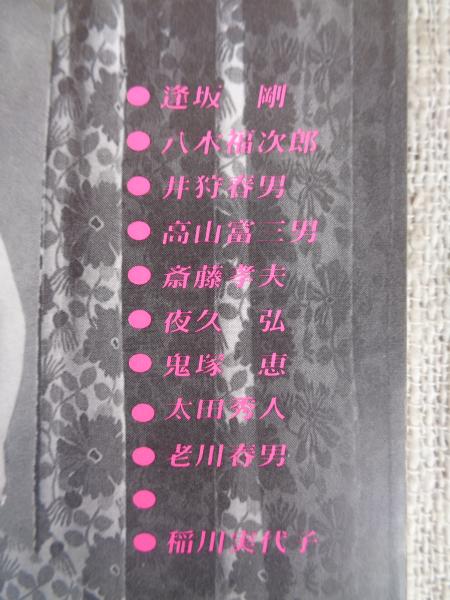 ● 逢坂　剛
● 八木福次郎
● 井狩春男
● 高山富三男
● 斎藤孝夫
● 夜久　弘
● 鬼塚　恵
● 太田秀人
● 老川春男
●
● 稲川実代子